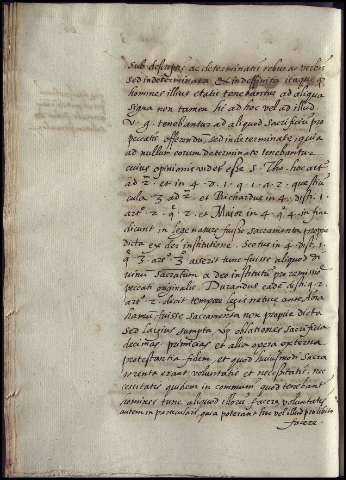 sub descriptis ac determinatis rebus ac verbis
sed indeterminata et indefinita itaque q
homines illius etatis tenebantur ad aliqua
signa non tamen hi ad hoc vel ad illud
v. g. tenebantur ad aliquod sacrificiu pro
peccatis offerendu sed indeterminate, quia
ad nullum eorum determinate tenebantur
cuius opinionis videt esse s. Tho. hoc art
ad 2. et in 4. d. 1. q. 1. a. 2. quaestiu
cula 3 ad 2. et Richardus in 4. dist. 1.
art. 2. q. 2. et Maior in 4. q. 4. in fin
dicunt in lege nature fuisse sacramentum proprie
dicta ex dei institutione. Scotus in 4. dist. 1.
q. 3. art. 3 asserit tunc fuisse aliquod di
uinu sacratum a deo institutu pro remissione
peccati originalis. Durandus eade dist. q. 2.
art. 2. dicit tempore legis nature ante Abra
hamu fuisse sacramenta non proprie dicta
sed largius sumpta ut oblationes sacrificia
decimas primitias et alia opera externa
protestantia fidem et quod huiusmodi sacra
menta erant voluntatis et necessitatis, ne
cessitatis quidem in communi quod tenebant
homines tunc aliquod illoru facere voluntatis
autem in particulari quia poterant hoc vel illud pro libito
facere